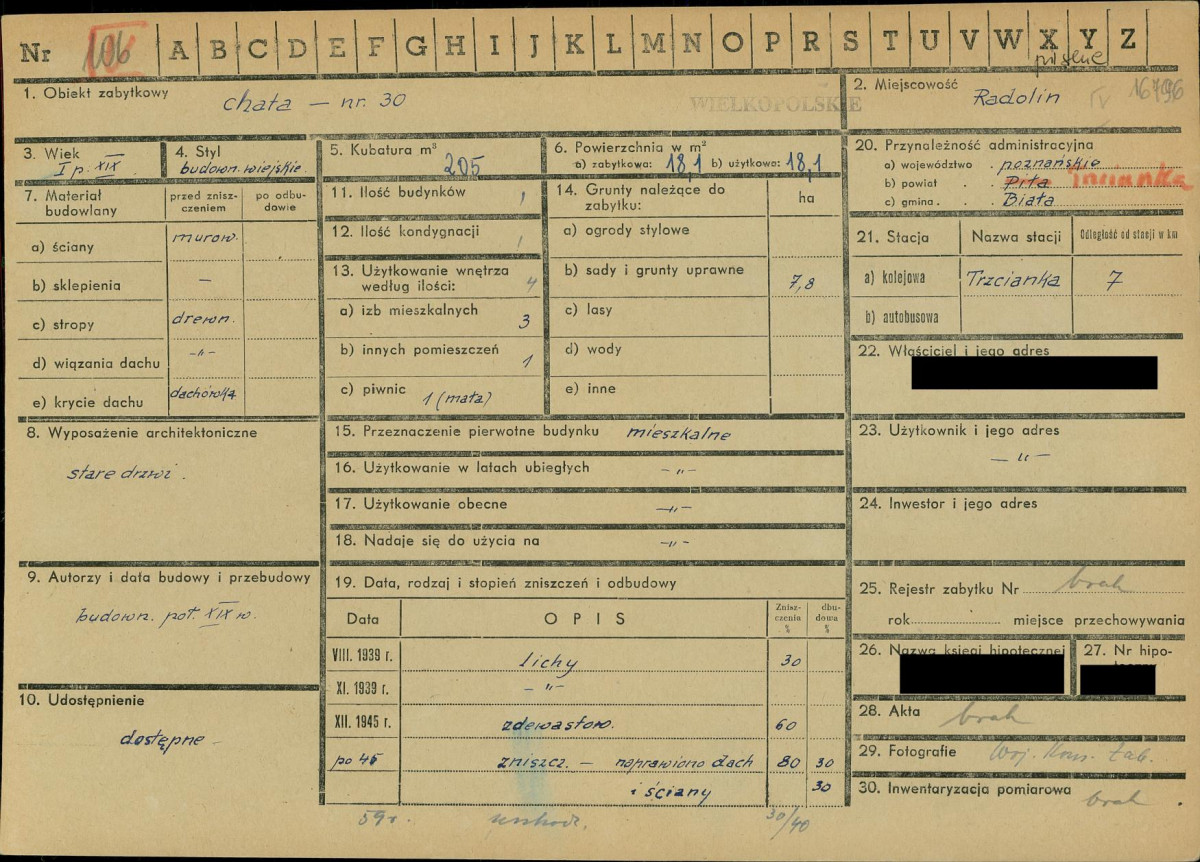 Nr 106 A B C D E F G H I J K L M N O P R S T U V W X Y Z
1. Obiekt zabytkowy chata — nr. 30
WIELKOPOLSKIE
2. Miejscowość Radolin IV 16796
3. Wiek I p. XIX
4. Styl budown. wiejskie
5. Kubatura m³ 205
6. Powierzchnia w m²
a) zabytkowa: 18,1 b) użytkowa: 18,1
7. Materiał budowlany
przed znisz-
czeniem
po odbu-
dowie
a) ściany murow.
b) sklepienia —
c) stropy drewn.
d) wiązania dachu —„—
e) krycie dachu dachówka
8. Wyposażenie architektoniczne
stare drzwi.
9. Autorzy i data budowy i przebudowy
budown. poł. XIX w.
10. Udostępnienie
dostępne —
11. Ilość budynków 1
12. Ilość kondygnacji 1
13. Użytkowanie wnętrza
według ilości: 4
a) izb mieszkalnych 3
b) innych pomieszczeń 1
c) piwnic 1 (mała)
14. Grunty należące do
zabytku: ha
a) ogrody stylowe
b) sady i grunty uprawne 7,8
c) lasy
d) wody
e) inne
15. Przeznaczenie pierwotne budynku mieszkalne
16. Użytkowanie w latach ubiegłych —„—
17. Użytkowanie obecne —„—
18. Nadaje się do użycia na —„—
19. Data, rodzaj i stopień zniszczeń i odbudowy
Data OPIS Znisz-
czenia
%
dbu-
dowa
%
VIII. 1939 r. lichy 30
XI. 1939 r. —„—
XII. 1945 r. zdewastow. 60
po 45 zniszcz. — naprawiono dach 80 30
i ściany 30
59 r. 30/40
20. Przynależność administracyjna
a) województwo poznańskie
b) powiat Piła Trzcianka
c) gmina Biała
21. Stacja Nazwa stacji Odległość od stacji w km
a) kolejowa Trzcianka 7
b) autobusowa
22. Właściciel i jego adres
23. Użytkownik i jego adres
—„—
24. Inwestor i jego adres
25. Rejestr zabytku Nr brak
rok miejsce przechowywania
26. Nazwa księgi hipotecznej
27. Nr hipo-
28. Akta brak
29. Fotografie Woj. Kons. Zab.
30. Inwentaryzacja pomiarowa brak